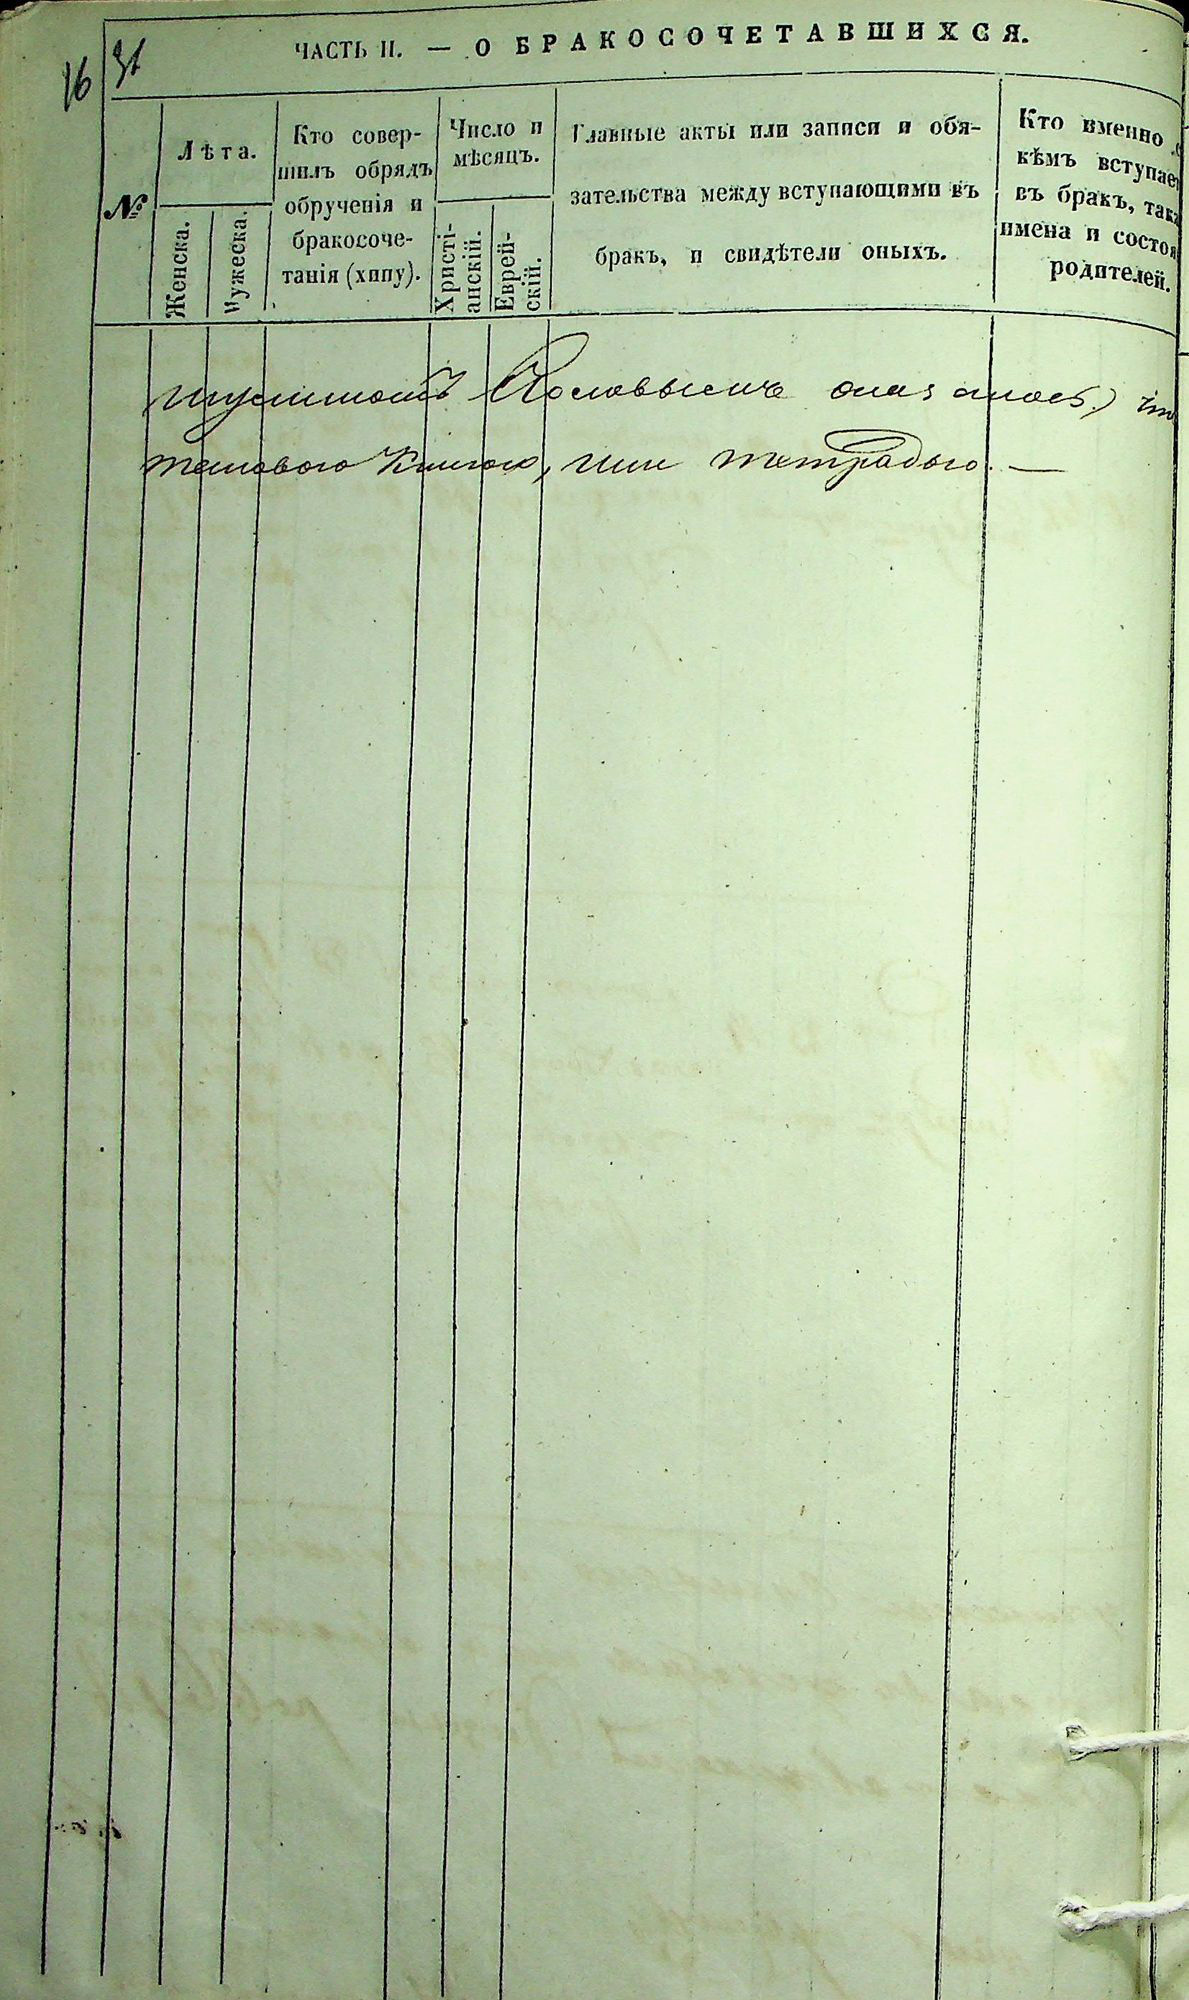 16 31
ЧАСТЬ II. — О БРАКОСОЧЕТАВШИХСЯ.
№
Лѣта.
Женска.
Мужеска.
Кто совер-
шилъ обрядъ
обрученія и
бракосоче-
танія (хипу).
Число и
мѣсяцъ.
Христі-
анскій.
Еврей-
скій.
Главные акты или записи и обя-
зательства между вступающими въ
бракъ, и свидѣтели оныхъ.
Кто именно с
кѣмъ вступает
въ бракъ, такж
имена и состоя
родителей.
книгою, или тетрадью. —